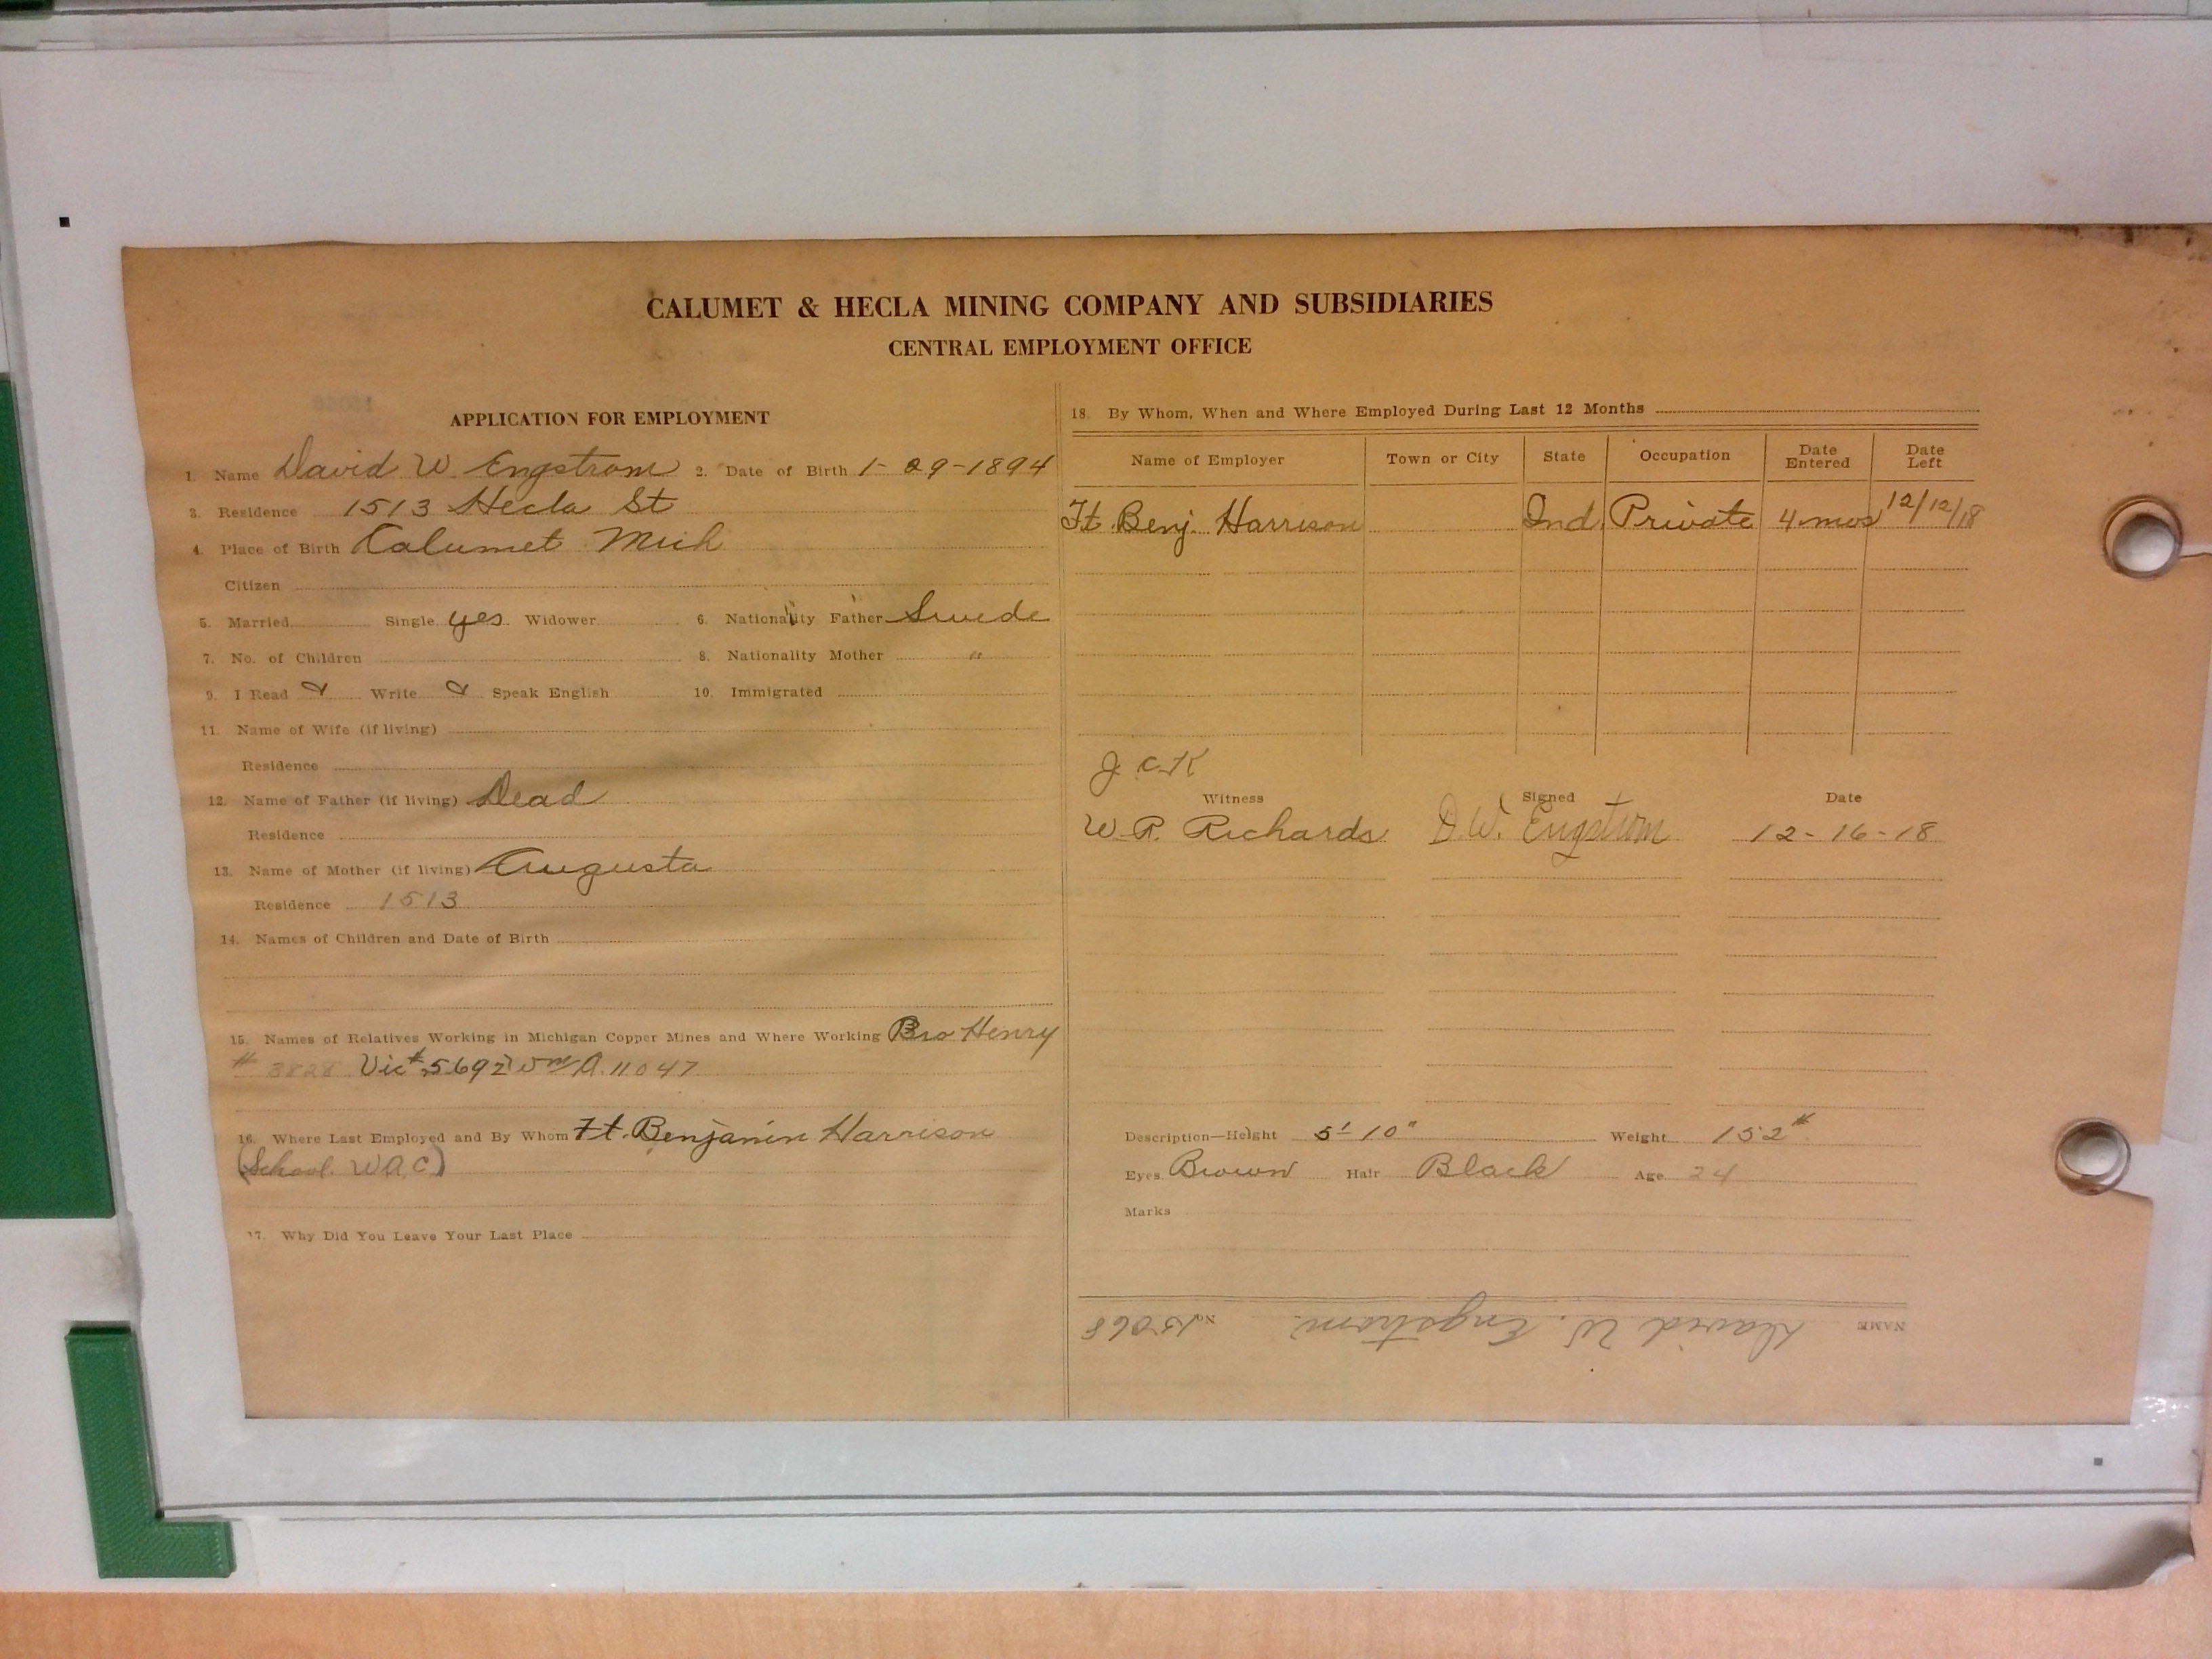 CALUMET & HECLA MINING COMPANY AND SUBSIDIARIES
CENTRAL EMPLOYMENT OFFICE
APPLICATION FOR EMPLOYMENT
1. Name David W. Engstrom 2. Date of Birth 1-29-1894
3. Residence 1513 Hecla St
4. Place of Birth Calumet Mich
Citizen
5. Married Single yes Widower 6. Nationality Father Swede
7. No. of Children 8. Nationality Mother "
9. I Read & Write & Speak English 10. Immigrated
11. Name of Wife (if living)
Residence
12. Name of Father (if living) Dead
Residence
13. Name of Mother (if living) Augusta
Residence 1513
14. Names of Children and Date of Birth
15. Names of Relatives Working in Michigan Copper Mines and Where Working Bro Henry
# 3828 Vic # 5692 Wm A. 11047
16. Where Last Employed and By Whom Ft. Benjamin Harrison
(School W.A.C)
17. Why Did You Leave Your Last Place
18. By Whom, When and Where Employed During Last 12 Months
Name of Employer Town or City State Occupation Date Entered Date Left
Ft. Benj. Harrison Ind. Private 4 mos 12/12/18
J C K
Witness Signed Date
W. R. Richards D.W. Engstrom 12-16-18
Description—Height 5' 10" Weight 152#
Eyes Brown Hair Black Age 24
Marks
NAME David W. Engstrom. No. 15068